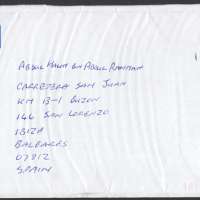 ABDUL HALIM BIN ABDUL RAHMAN
CARRETERA SAN JUAN
KM 13-1 BUZON
146 SAN LORENZO
IBIZA
BALEARES
07812
SPAIN